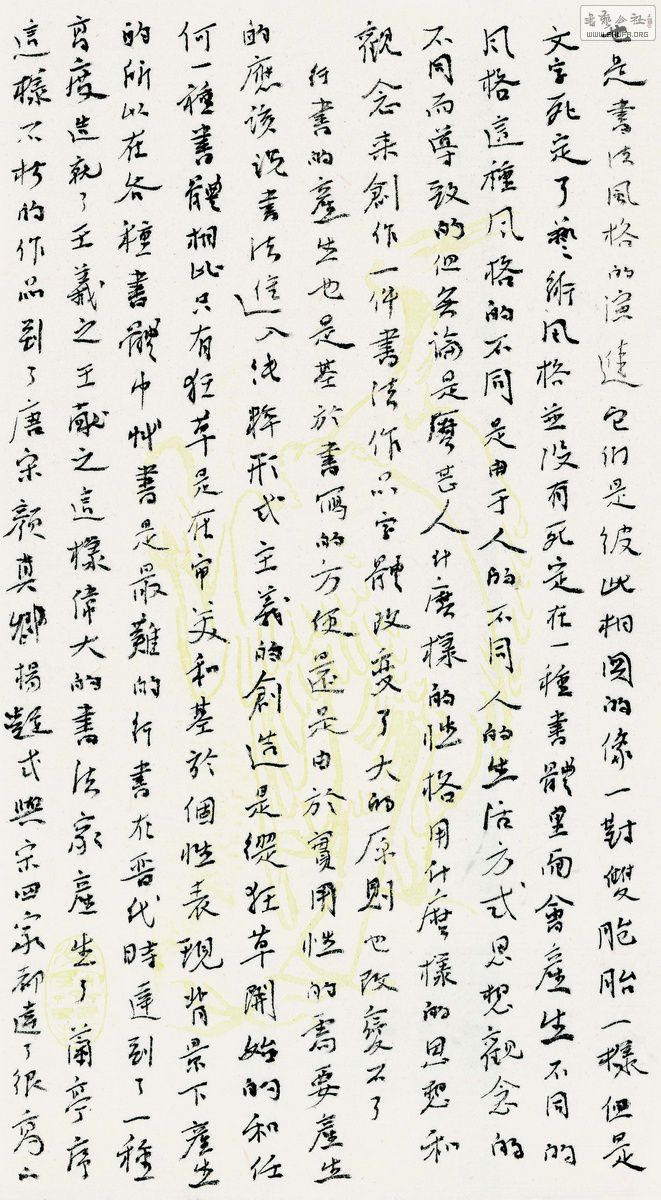 也是書法風格的演進它们是彼此相関的像一對雙胞胎一樣但是
文字死定了藝術风格並没有死定在一種書體里而會產生不同的
风格這種风格的不同是由于人的不同人的生活方式思想觀念的
不同而導致的但无論是麼甚人什麼樣的性格用什麼樣的思想和
觀念来創作一件書法作品字體改变了大的原则也改變不了
行書的產生也是基於書寫的方便還是由於實用性的需要產生
的應该说書法進入纯粹形式主義的創造是從狂草開始的和任
何一種書體相比只有狂草是在审美和基於個性表現背景下產生
的所以在各種書體中艸書是最難的行書在晋代時達到了一種
高度造就了王羲之王献之這樣偉大的書法家產生了蘭亭序
這樣不朽的作品到了唐宋顏真卿楊凝式與宋四家都達了很高的
書藝公社
WWW.SHUFA.ORG